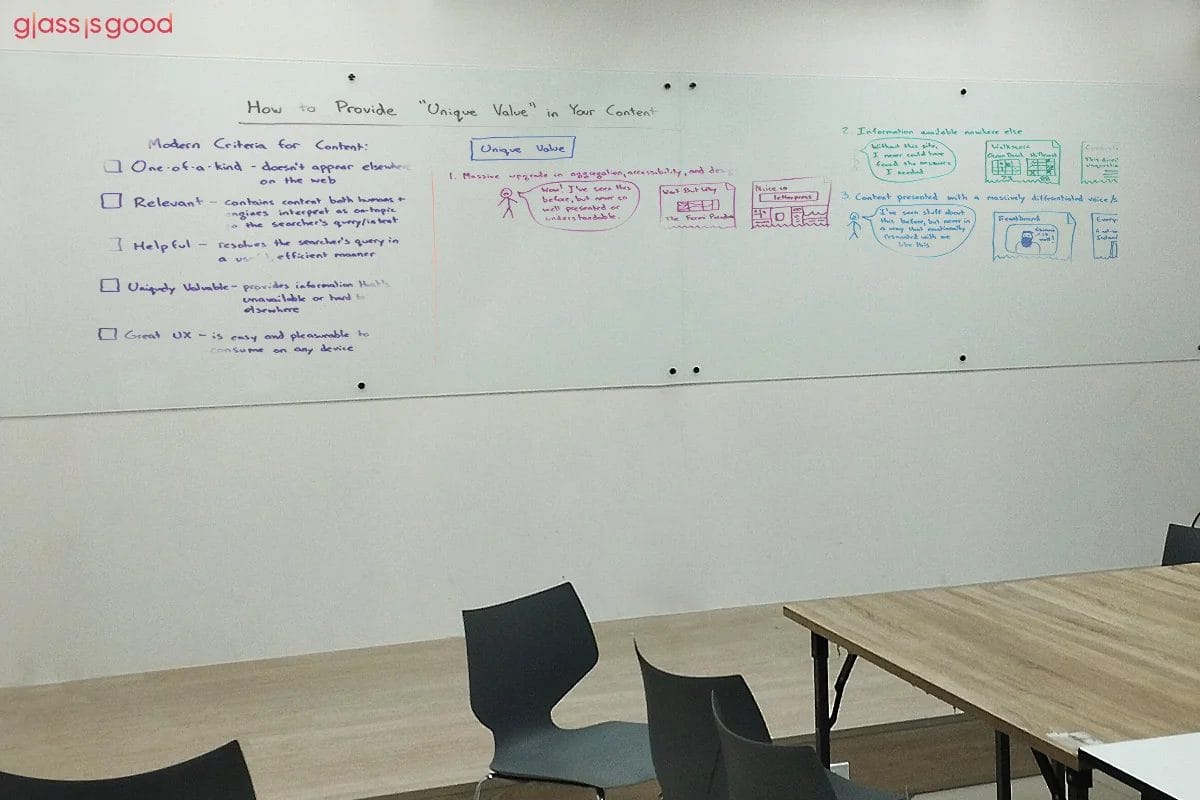 glassisgood
How to Provide "Unique Value" in Your Content
Modern Criteria for Content:
One-of-a-kind - doesn't appear elsewhere
on the web
Relevant - contains content both humans +
engines interpret as on-topic
to the searcher's query/intent
Helpful - resolves the searcher's query in
a efficient manner
Uniquely Valuable - provides information that's
unavailable or hard to
elsewhere
Great UX - is easy and pleasurable to
consume on any device
Unique Value
1. Massive upgrade in aggregation, accessibility, and des
Wow! I've seen this
before, but never so
well presented or
understandable.
Wait But Why
The Fermi Paradox
Nice to
letterpress
2. Information available nowhere else
Without this site,
I never could have
found the answers
I needed
Walkscore
3. Content presented with a massively differentiated voice/s
I've seen stuff about
this before, but never in
a way that emotionally
resonated with me
like this
Every